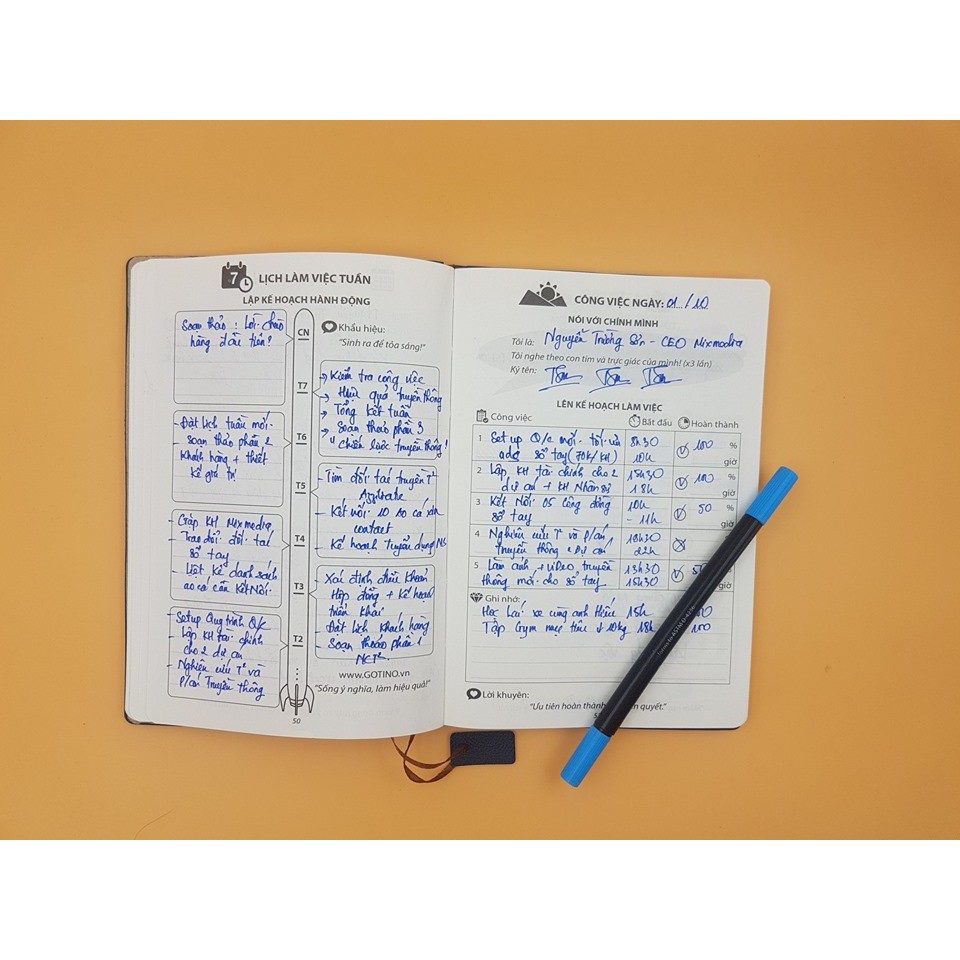 7 LỊCH LÀM VIỆC TUẦN
LẬP KẾ HOẠCH HÀNH ĐỘNG
Soạn thảo : Lời chào
hàng đầu tiên?
CN
Khẩu hiệu:
"Sinh ra để tỏa sáng!"
T7
Kiểm tra công việc
Hiệu quả truyền thông
Tổng kết tuần
Soạn thảo phần 3
"Chiến lược truyền thông!
- Đặt lịch tuần mới
- Soạn thảo phần 2
Khách hàng + thiết
kế giá trị
T6
T5
- Tìm đối tác truyền T²
- Kết nối 10
contact
- Kế hoạch Tuyển dụng NS
- Gặp KH Mixmedia
- Trao đổi đối tác
Sổ tay
- Liệt kê danh sách
cần kết nối
T4
T3
- Xác định điều khoản
Hợp đồng + Kế hoạch
triển khai
- Đặt lịch khách hàng
- Soạn thảo phần 1
NCT²
- Setup Quy trình Q/c
- Lập KH tài chính
cho 2 dự án
- Nghiên cứu T² và
P/án Truyền thông
T2
www.GOTINO.vn
"Sống ý nghĩa, làm hiệu quả!"
50
CÔNG VIỆC NGÀY: 01/10
NÓI VỚI CHÍNH MÌNH
Tôi là: Nguyễn Trường Sơn - CEO Mixmedia
Tôi nghe theo con tim và trực giác của mình! (x3 lần)
Ký tên:
LÊN KẾ HOẠCH LÀM VIỆC
Công việc Bắt đầu Hoàn thành
1 Set up Q/c mới tối ưu 8h30 100 %
sổ tay (70k/KH) 10h giờ
2 Lập KH tài chính cho 2 15h30 100 %
dự án + KH Nhân sự 18h giờ
3 Kết Nối 05 cộng đồng 10h 50 %
sổ tay - 11h giờ
4 Nghiên cứu T² và P/án 18h30
truyền thông 2 Dự án 22h
5 Làm ảnh + video truyền 13h30
thông mới cho sổ tay 15h30 giờ
Ghi nhớ:
Học lái xe cùng anh Hiếu 15h
Tập Gym mục tiêu ↓ 10kg 18h 100
Lời khuyên:
"Ưu tiên hoàn thành quyết."